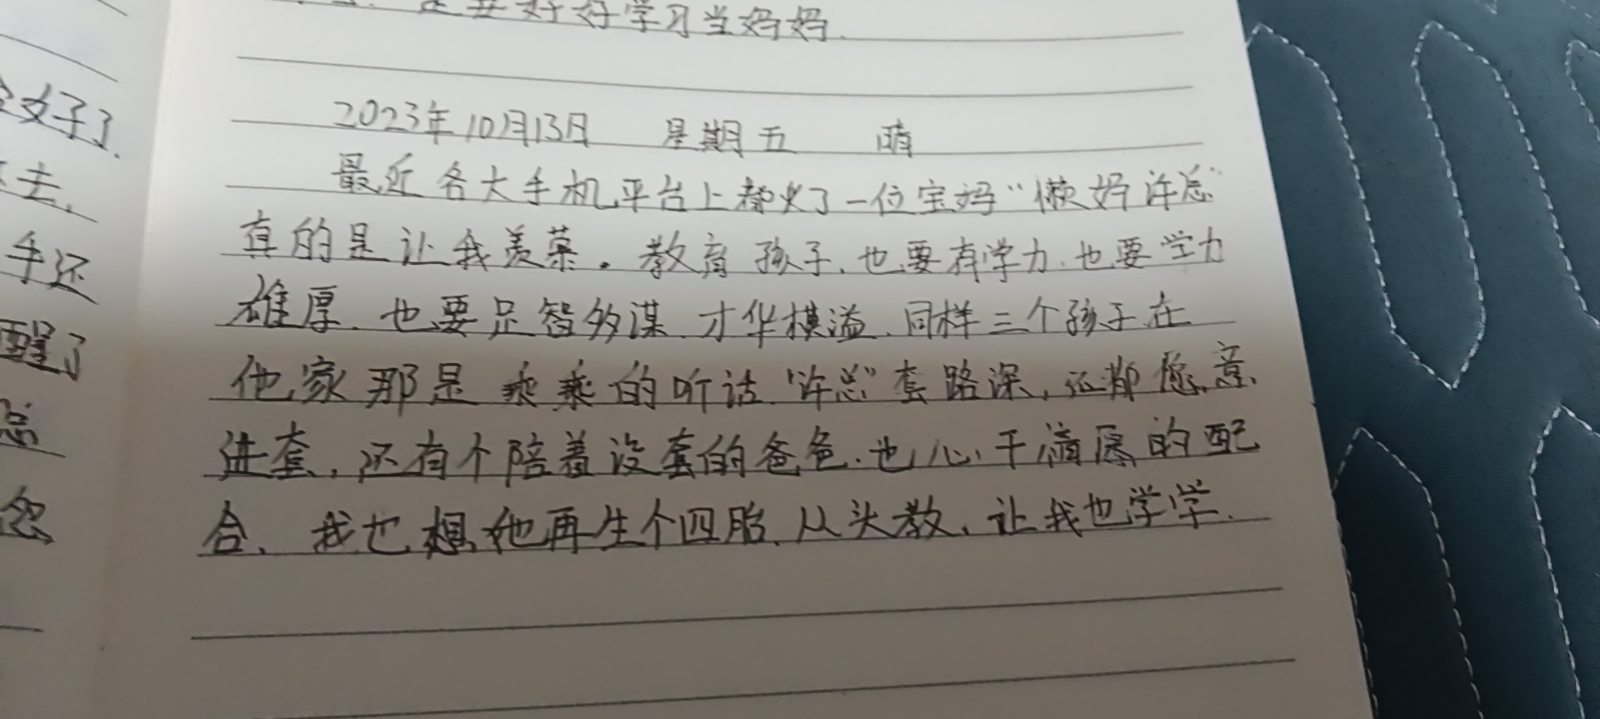 好好学习当妈妈.
2023年10月13日 星期五 晴
最近各大手机平台上都火了一位宝妈“懒妈许总”
真的是让我羡慕。教育孩子.也要有学力.也要学力
雄厚.也要足智多谋.才华横溢.同样三个孩子在
他家那是乖乖的听话.“许总”套路深,还都愿意
进套,还有个陪着设套的爸爸.也心干情愿的配
合、我也想她再生个四胎.从头教、让我也学学.
女子了.
去,
手还
醒了
总